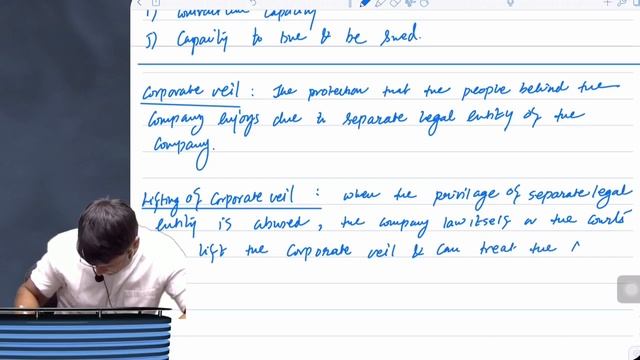 4) Contractual Capacity
5) Capacity to sue & be sued.
Corporate veil : The protection that the people behind the
Company enjoys due to separate legal entity of the
Company.
Lifting of Corporate veil : When the privilage of separate legal
entity is abused, the company law itself or the Courts
lift the Corporate veil & can treat the